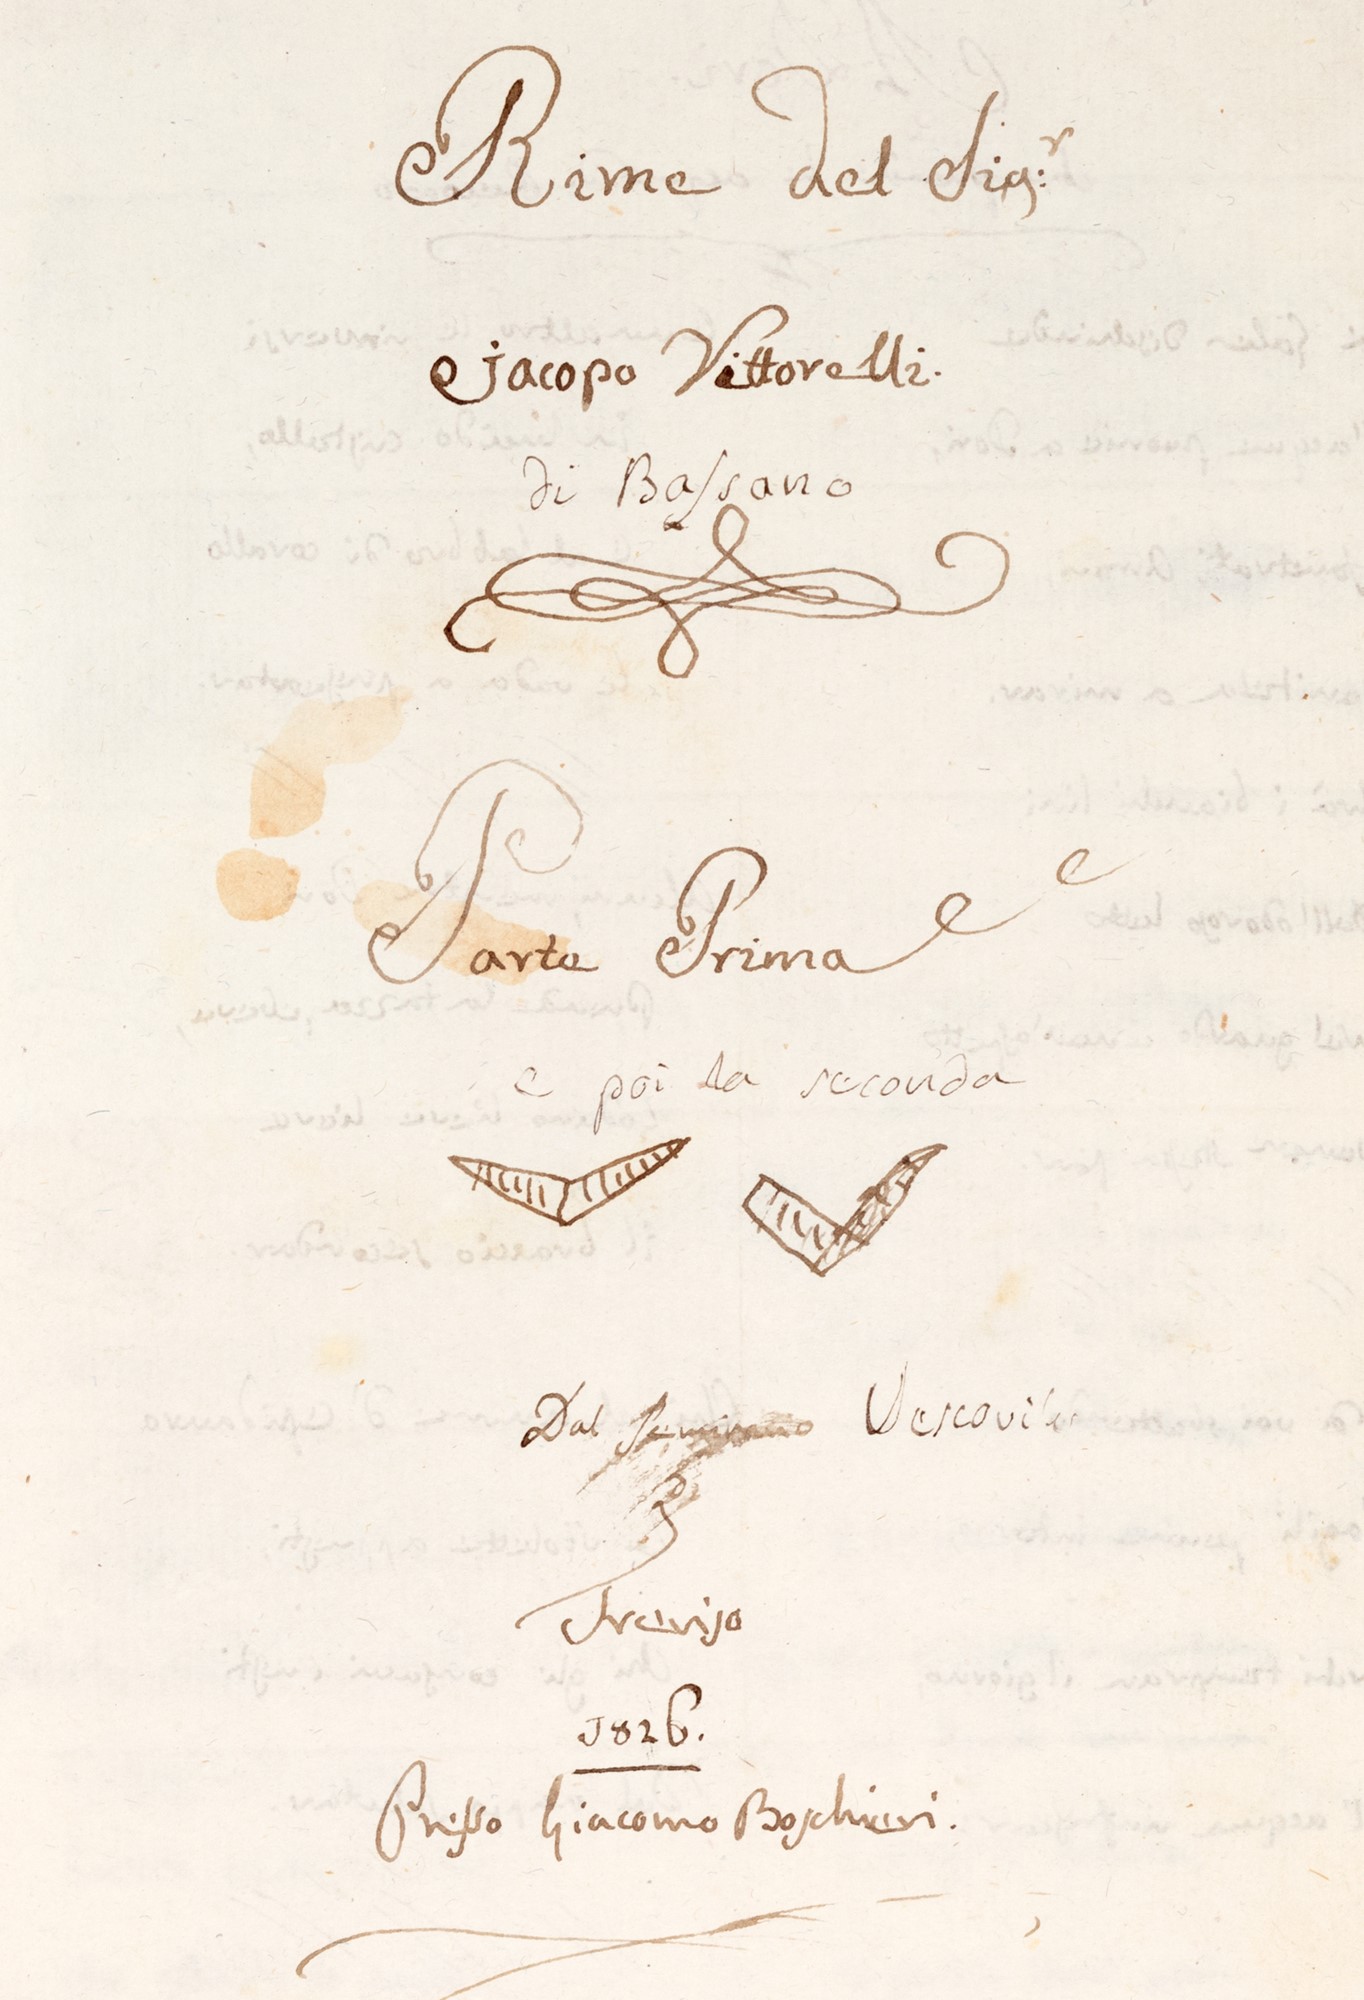 Rime del Sig:r
Jacopo Vittorelli.
di Bassano
Parte Prima
e poi la seconda
Dal Seminario Vescovile
Treviso
1826.
Presso Giacomo Boschieri.